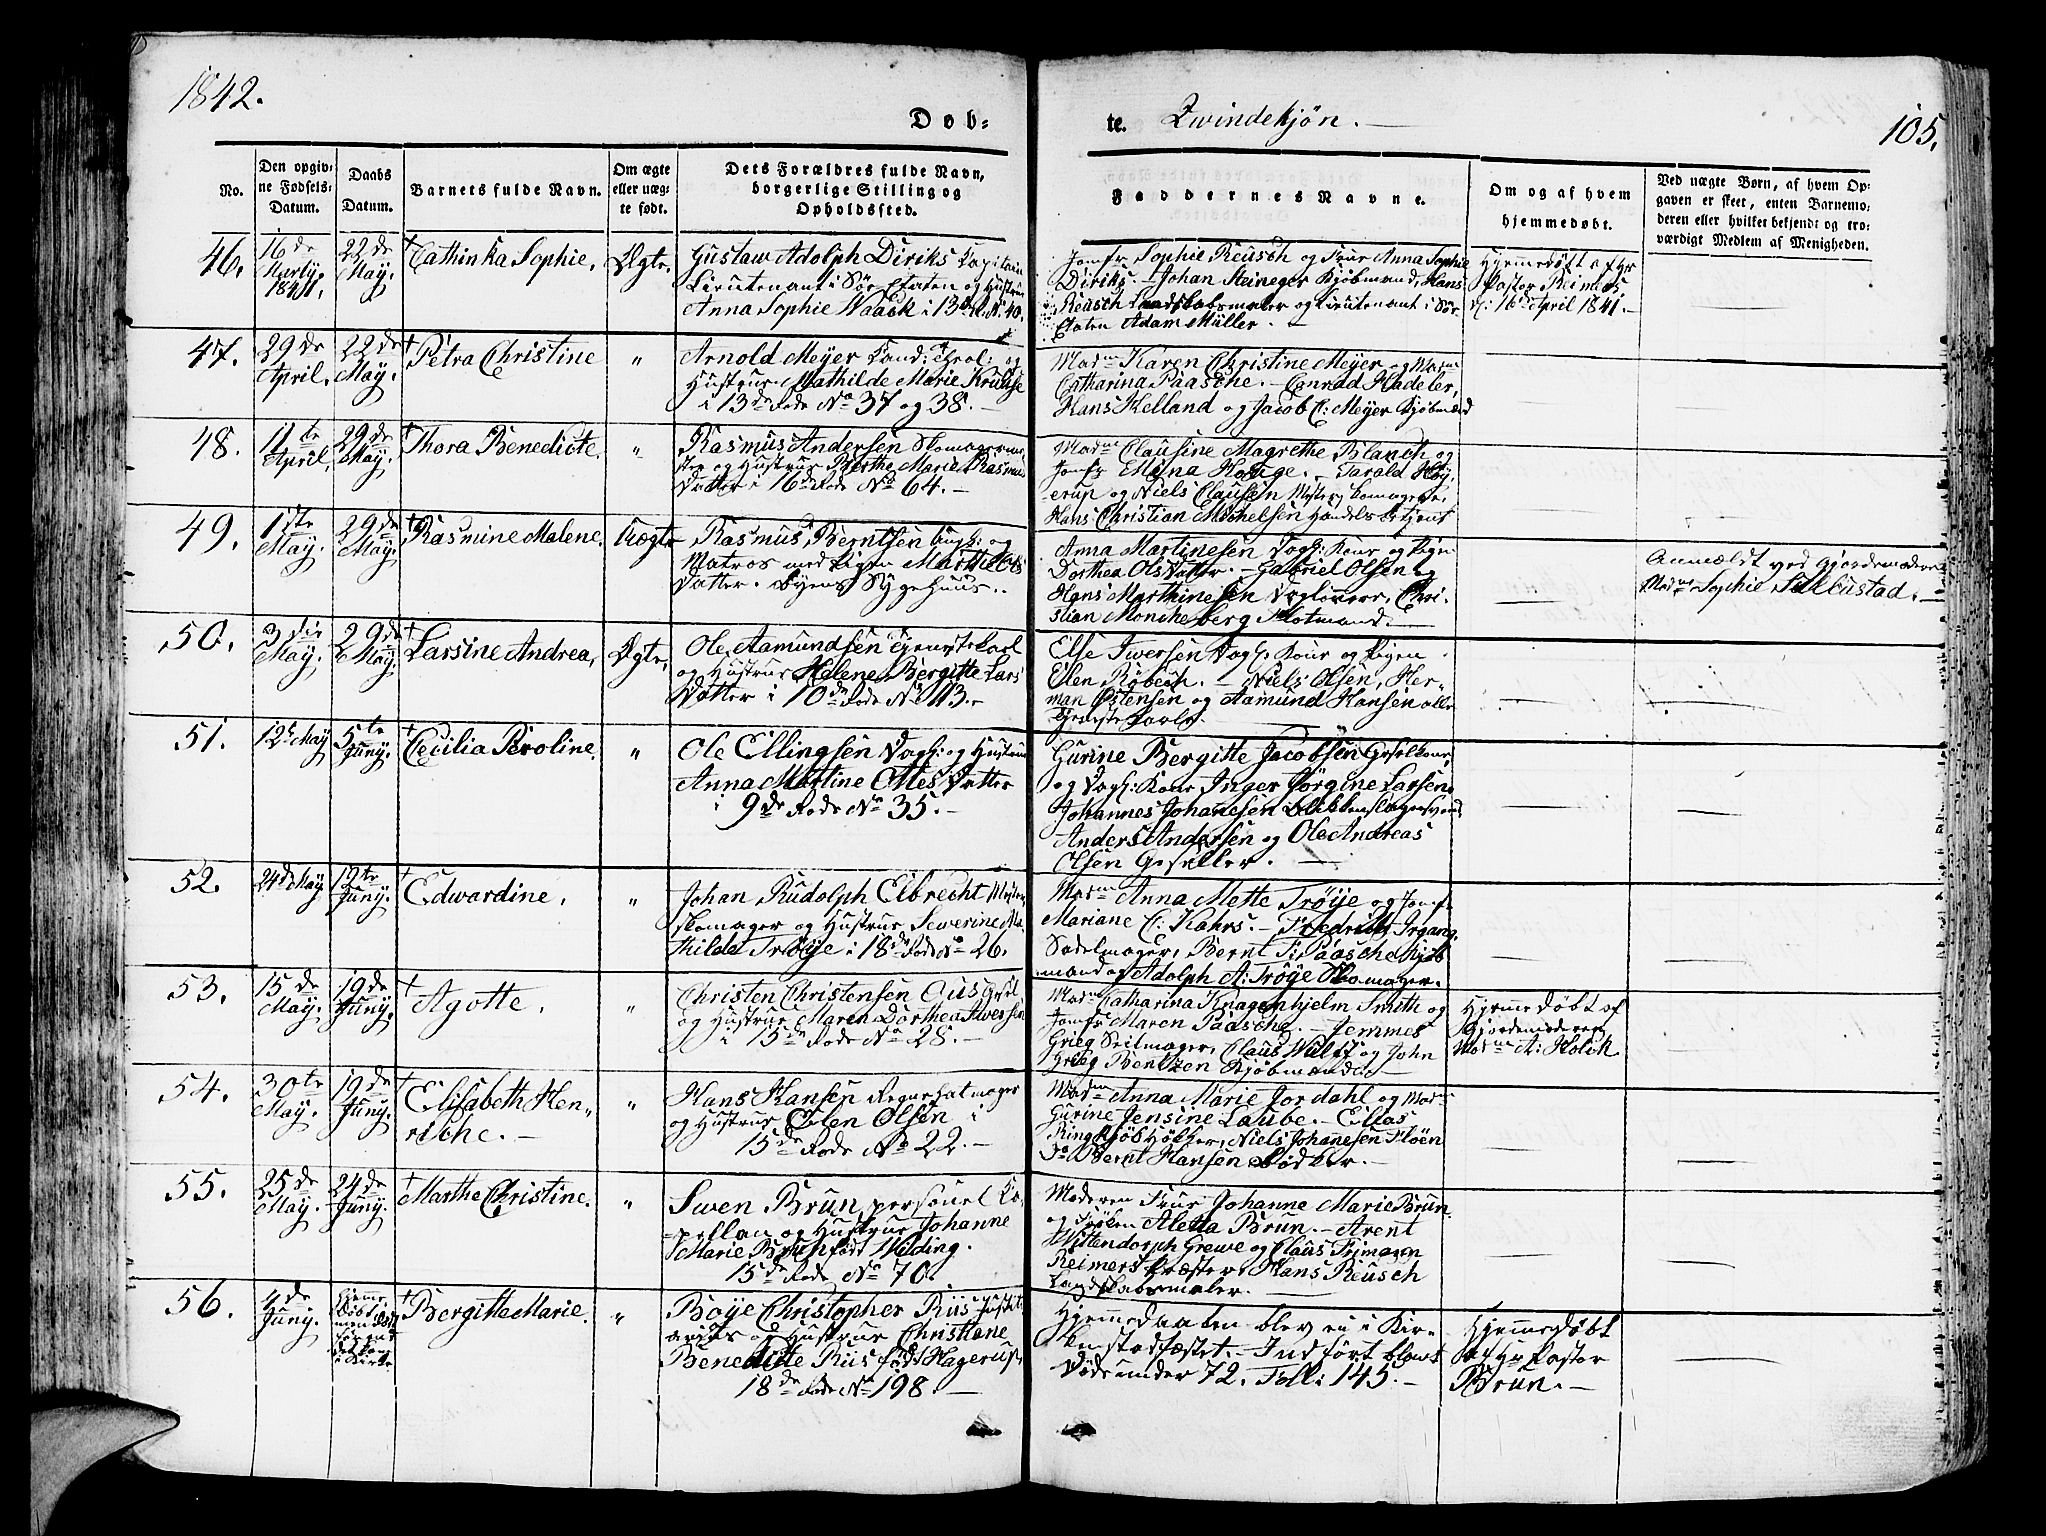 1842.
Døb-
te. Qvindekjøn.
105.
No.
Den opgiv-
ne Fødsels-
Datum.
Daabs
Datum.
Barnets fulde Navn.
Om ægte
eller uæg-
te født.
Dets Forældres fulde Navn,
borgerlige Stilling og
Opholdssted.
Faddernes Navne.
Om og af hvem
hjemmedøbt.
Ved uægte Børn, af hvem Op-
gaven er skeet, enten Barnemo-
deren eller hvilket bekjendt og tro-
værdigt Medlem af Menigheden.
46.
16de
1841.
22de
May.
Cathinka Sophie.
Ægte.
Gustaw Adolph Diriks Capitain
Lieutenant i Søe Etaten og Hustrue
Anna Sophie Waack i 13de R. No 40.
Jomfr Sophie Reusch og Frue Anna Sophie
Diriks. Johan Steineger Kjøbmand, Hans
Reusch Landskabsmaler og Lieutenant i Søe
Etaten Adam Müller.
Hjemmedøbt af Hr
Pastor Reimers
d: 16de April 1841.
47.
29de
April.
22de
May.
Petra Christine
"
Arnold Meyer Cand: Theol: og
Hustrue Mathilde Marie Kruuse
i 13de Rode No 37 og 38.
Madme Karen Christine Meyer og Madme
Catharina Paasche. Conrad Hadeler,
Hans Kelland og Jacob C: Meyer Kjøbmænd
48.
11te
April.
29de
May.
Thora Benedicte.
"
Rasmus Andersen Skomagerme-
ster og Hustrue Berthe Marie Rasmus
Datter i 16de Rode No 64.
Madme Clausine Magrethe Blanch og
Jomfr Mina Hauge. Tarald Høy-
erup og Niels Clausen Mester Skomagere.
Hans Christian Michelsen Handelsbetjent
49.
1ste
May.
29de
May.
Rasmine Malene.
Uægte
Rasmus Berntsen Ungk: og
Matros med Pigen Marthe Ols
Datter. Byens Sygehuus.
Anna Martinesen Dagk: Kone og Pigen
Dorthea Ols Datter. Gabriel Olsen og
Hans Marthinesen Daglønnere, Chri-
stian Monikeberg Flotmand.
Anmældt ved Gjordemoderen
Madme Sophie Salcustad.
50.
3die
May.
29de
May.
Larsine Andrea,
Ægte.
Ole Aamundsen Tjenestekarl
og Hustrue Helene Bergitte Lars
Datter i 10de Rode No 113.
Else Iwersen Dagk: Kone og Pigen
Elen Røbech. Niels Olsen, Her-
man Østensen og Aamund Hansen alle
Tjenestekarle.
51.
12te May
5te
Juny.
Cecilia Peroline.
"
Ole Ellingsen Dagk: og Hustrue
Anna Martine Ottes Datter
i 9de Rode No 35.
Gurine Bergitte Jacobsen Geselkone,
og Dagk: Kone Inger Jørgine Larsen.
Johannes Johanesen Blikkenslagersvend
Anders Andersen og Ole Andreas
Olsen Geseller.
52.
24de May
12te
Juny.
Edwardine.
"
Johan Rudolph Elbrecht Mester
Skomager og Hustrue Severine Ma-
thilde Trøye i 18de Rode No 26.
Madme Anna Mette Trøye og Jomfr
Mariane C: Kahrs. Friedrich Irgang.
Sadelmager, Bernt F: Paasche Kjøb
mand og Adolph A: Trøye Skomager.
53.
15de
May.
19de
Juny.
Agotte.
"
Christen Christensen Aus Gesel
og Hustrue Maren Dorthea Iwersen
i 15de Rode No 28.
Madme Catharina Knagenhjelm Smith og
Jomfr Maren Paasche. Jemmes
Grieg Seilmager, Claus Wulff og John
Grieg Bentzen Kjøbmænd.
Hjemmedøbt af
Gjordemoderen
Madme A: Holck.
54.
30te
May.
19de
Juny.
Elisabeth Hen-
riche.
"
Hans Hansen Regnehatmager
og Hustrue Elen Olsen i
15de Rode No 22.
Madme Anna Marie Jordahl og Madme
Gurine Jensine Laube. Elias
Ringkjøb Høker, Niels Johanesen Fløen
Bernt Hansen Bødker.
55.
25de
May.
24de
Juny.
Marthe Christine.
"
Swen Brun, personel Ka-
pellan og Hustrue Johanne
Marie Brun født Wilding.
15de Rode No 70.
Moderen Frue Johanne Marie Brun.
og Frøken Aletta Brun. Arent
Wittendorph Grewe og Claus Frimann
Reimers Præster. Hans Reusch
Landskabsmaler.
56.
4de
Juny.
Hjeme
døbt
i Kirke
Bergitte Marie.
"
Boye Christopher Riis Justit-
arius og Hustrue Christiane
Benedicte Riis født Hagerup.
18de Rode No 198.
Hjemmedaaben blev ei i Kir-
ken stadfæstet. Indført blandt
Døde under 72. Foll: 145.
Hjemmedøbt
af Hr Pastor
Brun.